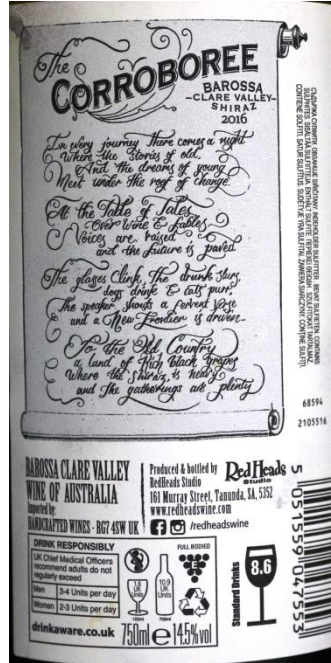 The
CORROBOREE
BAROSSA
-CLARE VALLEY-
SHIRAZ
2016
In every journey there comes a night
Where the stories of old,
And the dreams of young
Meet under the roof of change.
At the Table of Tales
Over Wine & Fables
Voices are raised
and the future is paved
The glasses Clink, The drunk slurs,
dogs drink & cats purr,
The speaker shouts a fervent verse
and a New Frontier is driven
To the Old Country
a land of rich black grapes
Where the Shiraz is heavy
and the gatherings are plenty
СЪДЪРЖА СУЛФИТИ. OBSAHUJE SIŘIČITANY. INDEHOLDER SULFITTER. BEVAT SULFIETEN. CONTAINS
CONTIENE SOLFITI.
68594
2105516
BAROSSA CLARE VALLEY
WINE OF AUSTRALIA
Imported by:
HANDCRAFTED WINES - RG7 4SW UK
Produced & bottled by
RedHeads Studio
161 Murray Street, Tanunda, SA, 5352
www.redheadswine.com
/redheadswine
RedHeads
Studio
DRINK RESPONSIBLY
UK Chief Medical Officers
recommend adults do not
regularly exceed
Men 3-4 Units per day
Women 2-3 Units per day
drinkaware.co.uk
UK
Units
125ml
10.9
UK
Units
750ml
FULL BODIED
E
750ml e 14.5%vol
Standard Drinks
8.6
5 051559 047553